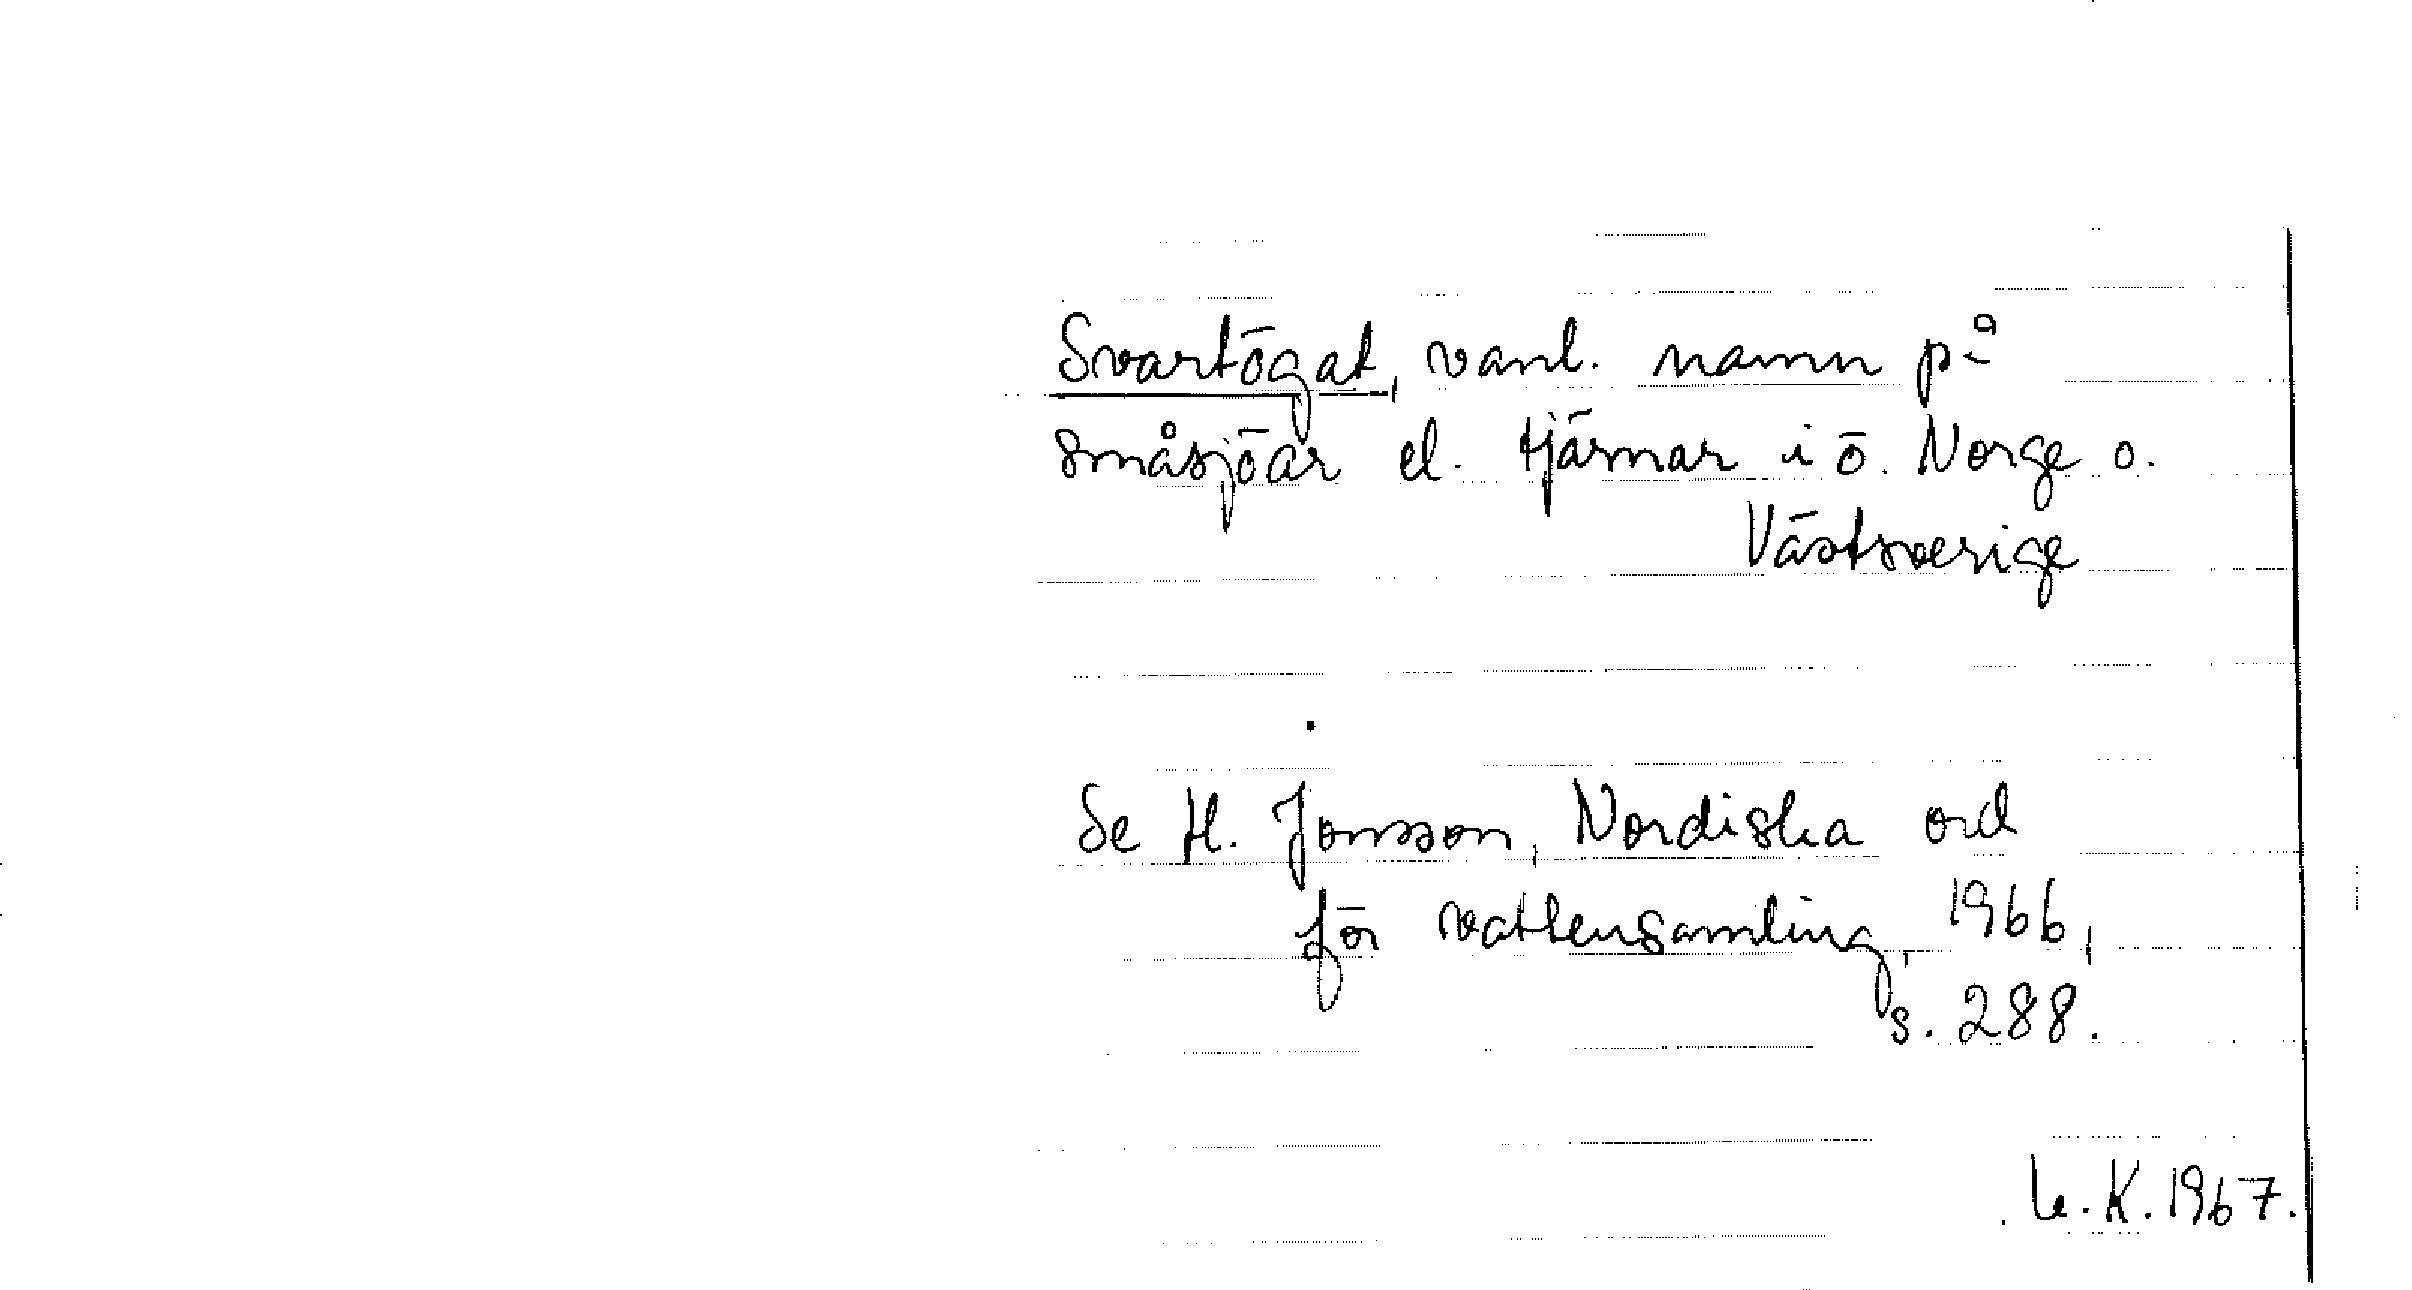 Svartögat, vanl. namn på
småsjöar el. tjärnar i ö. Norge o.
Västsverige
Se H. Jonsson, Nordiska ord
för vattensamling, 1966,
s. 288.
K. 1967.